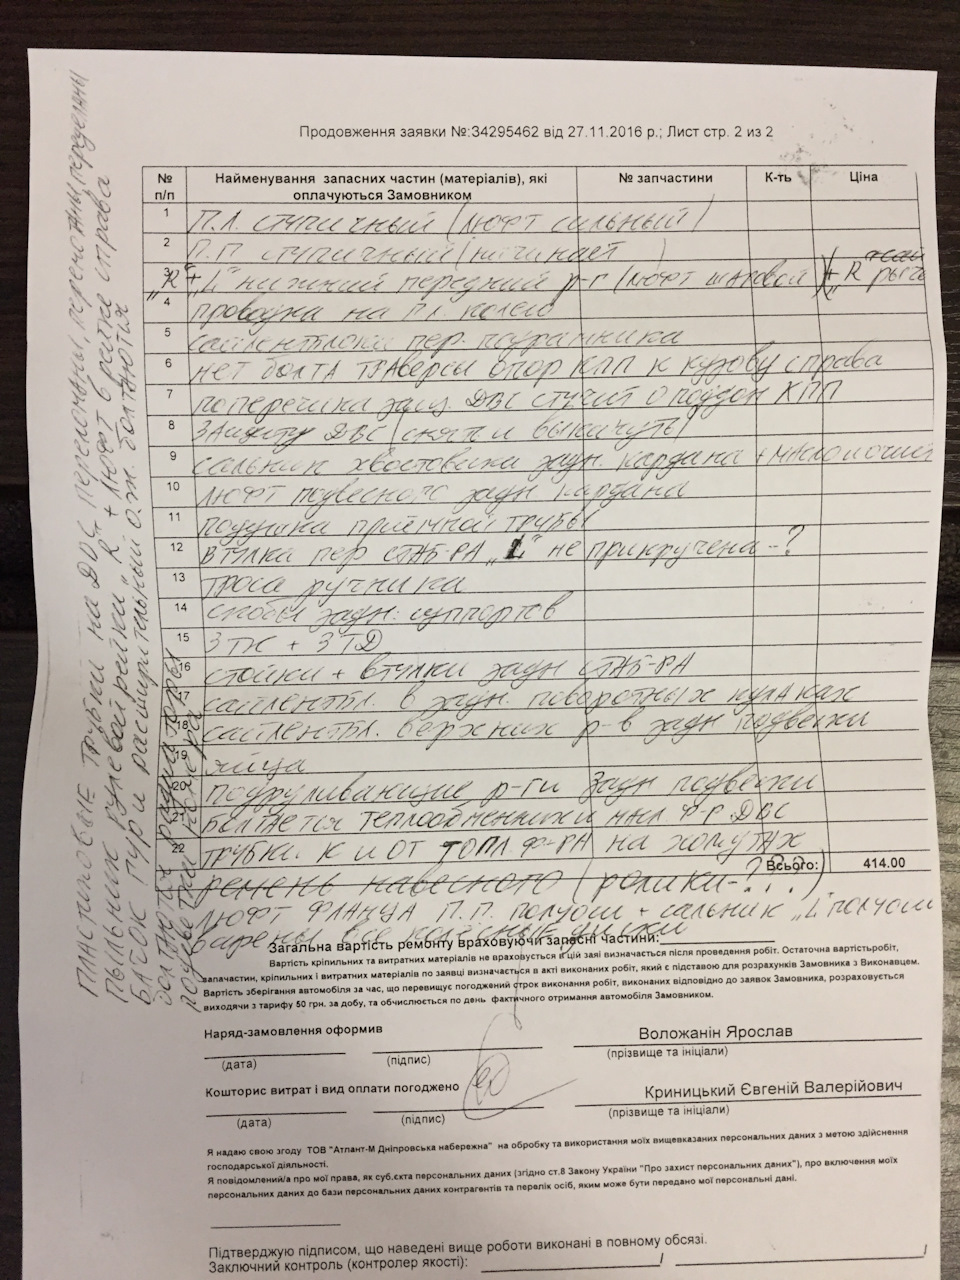 Продовження заявки №:34295462 від 27.11.2016 р.; Лист стр. 2 из 2
№ п/п Найменування запасних частин (матеріалів), які оплачуються Замовником № запчастини К-ть Ціна
1 П.Л. ступичный (люфт сильный)
2 П.П ступичный (начинает)
3 "R" + "L" нижний передний р-г (люфт шаровой) + R рычаг
4 проводка на П.Л. колесо
5 сайлентблоки пер. подрамника
6 нет болта траверсы опор КПП к кузову справа
7 поперечина защ. ДВС стучит о поддон КПП
8 защиту ДВС (снять и выкачуть)
9 сальник хвостовика задн. кардана +
10 люфт подвесного задн кардана
11 подушка приёмной трубы
12 втулка пер стаб-ра "L" не прикручена-?
13 троса ручника
14 скобы задн. суппортов
15 ЗТК + ЗТД
16 стойки + втулки задн стаб-ра
17 сайлентбл. в задн. поворотных кулаках
18 сайлентбл. верхних р-в задн подвески
19 яйца
20 подруливающие р-ги задн подвески
21 болтается теплообменник и масл. ф-р ДВС
22 трубки к и от топл. ф-ра на хомутах
Всього: 414.00
ремень навесного (ролики-?..)
люфт фланца П.П. полуоси + сальник "L" полуоси
варены все колёсные диски
Загальна вартість ремонту враховуючи запасні частини:
Вартість кріпильних та витратних матеріалів не враховується в цій заяві визначається після проведення робіт. Остаточна вартістьробіт,
запачастин, кріпильних і витратних матеріалів по заявці визначається в акті виконаних робіт, який є підставою для розрахунків Замовника з Виконавцем.
Вартість зберігання автомобіля за час, що перевищує погоджений строк виконання робіт, виконаних відповідно до заявок Замовника, розраховується
виходячи з тарифу 50 грн. за добу, та обчислюється по день фактичного отримання автомобіля Замовником.
Наряд-замовлення оформив Воложанін Ярослав
(дата) (підпис) (прізвище та ініціали)
Кошторис витрат і вид оплати погоджено Криницький Євгеній Валерійович
(дата) (підпис) (прізвище та ініціали)
Я надаю свою згоду ТОВ "Атлант-М Дніпровська набережна" на обробку та використання моїх вищевказаних персональних даних з метою здійснення
господарської діяльності.
Я повідомлений/а про мої права, як суб.єкта персональних даних (згідно ст.8 Закону України "Про захист персональних даних"), про включення моїх
персональних даних до бази персональних даних контрагентів та перелік осіб, яким може бути передано мої персональні дані.
Підтверджую підписом, що наведені вище роботи виконані в повному обсязі.
Заключний контроль (контролер якості): / /
пластиковые трубки на ДВС переломаны, перемотаны, переделаны
пыльник рулевой рейки "R" + люфт в рейке справа
бачок ГУР и расширительный о.ж. болтаются
болтаются радиаторы